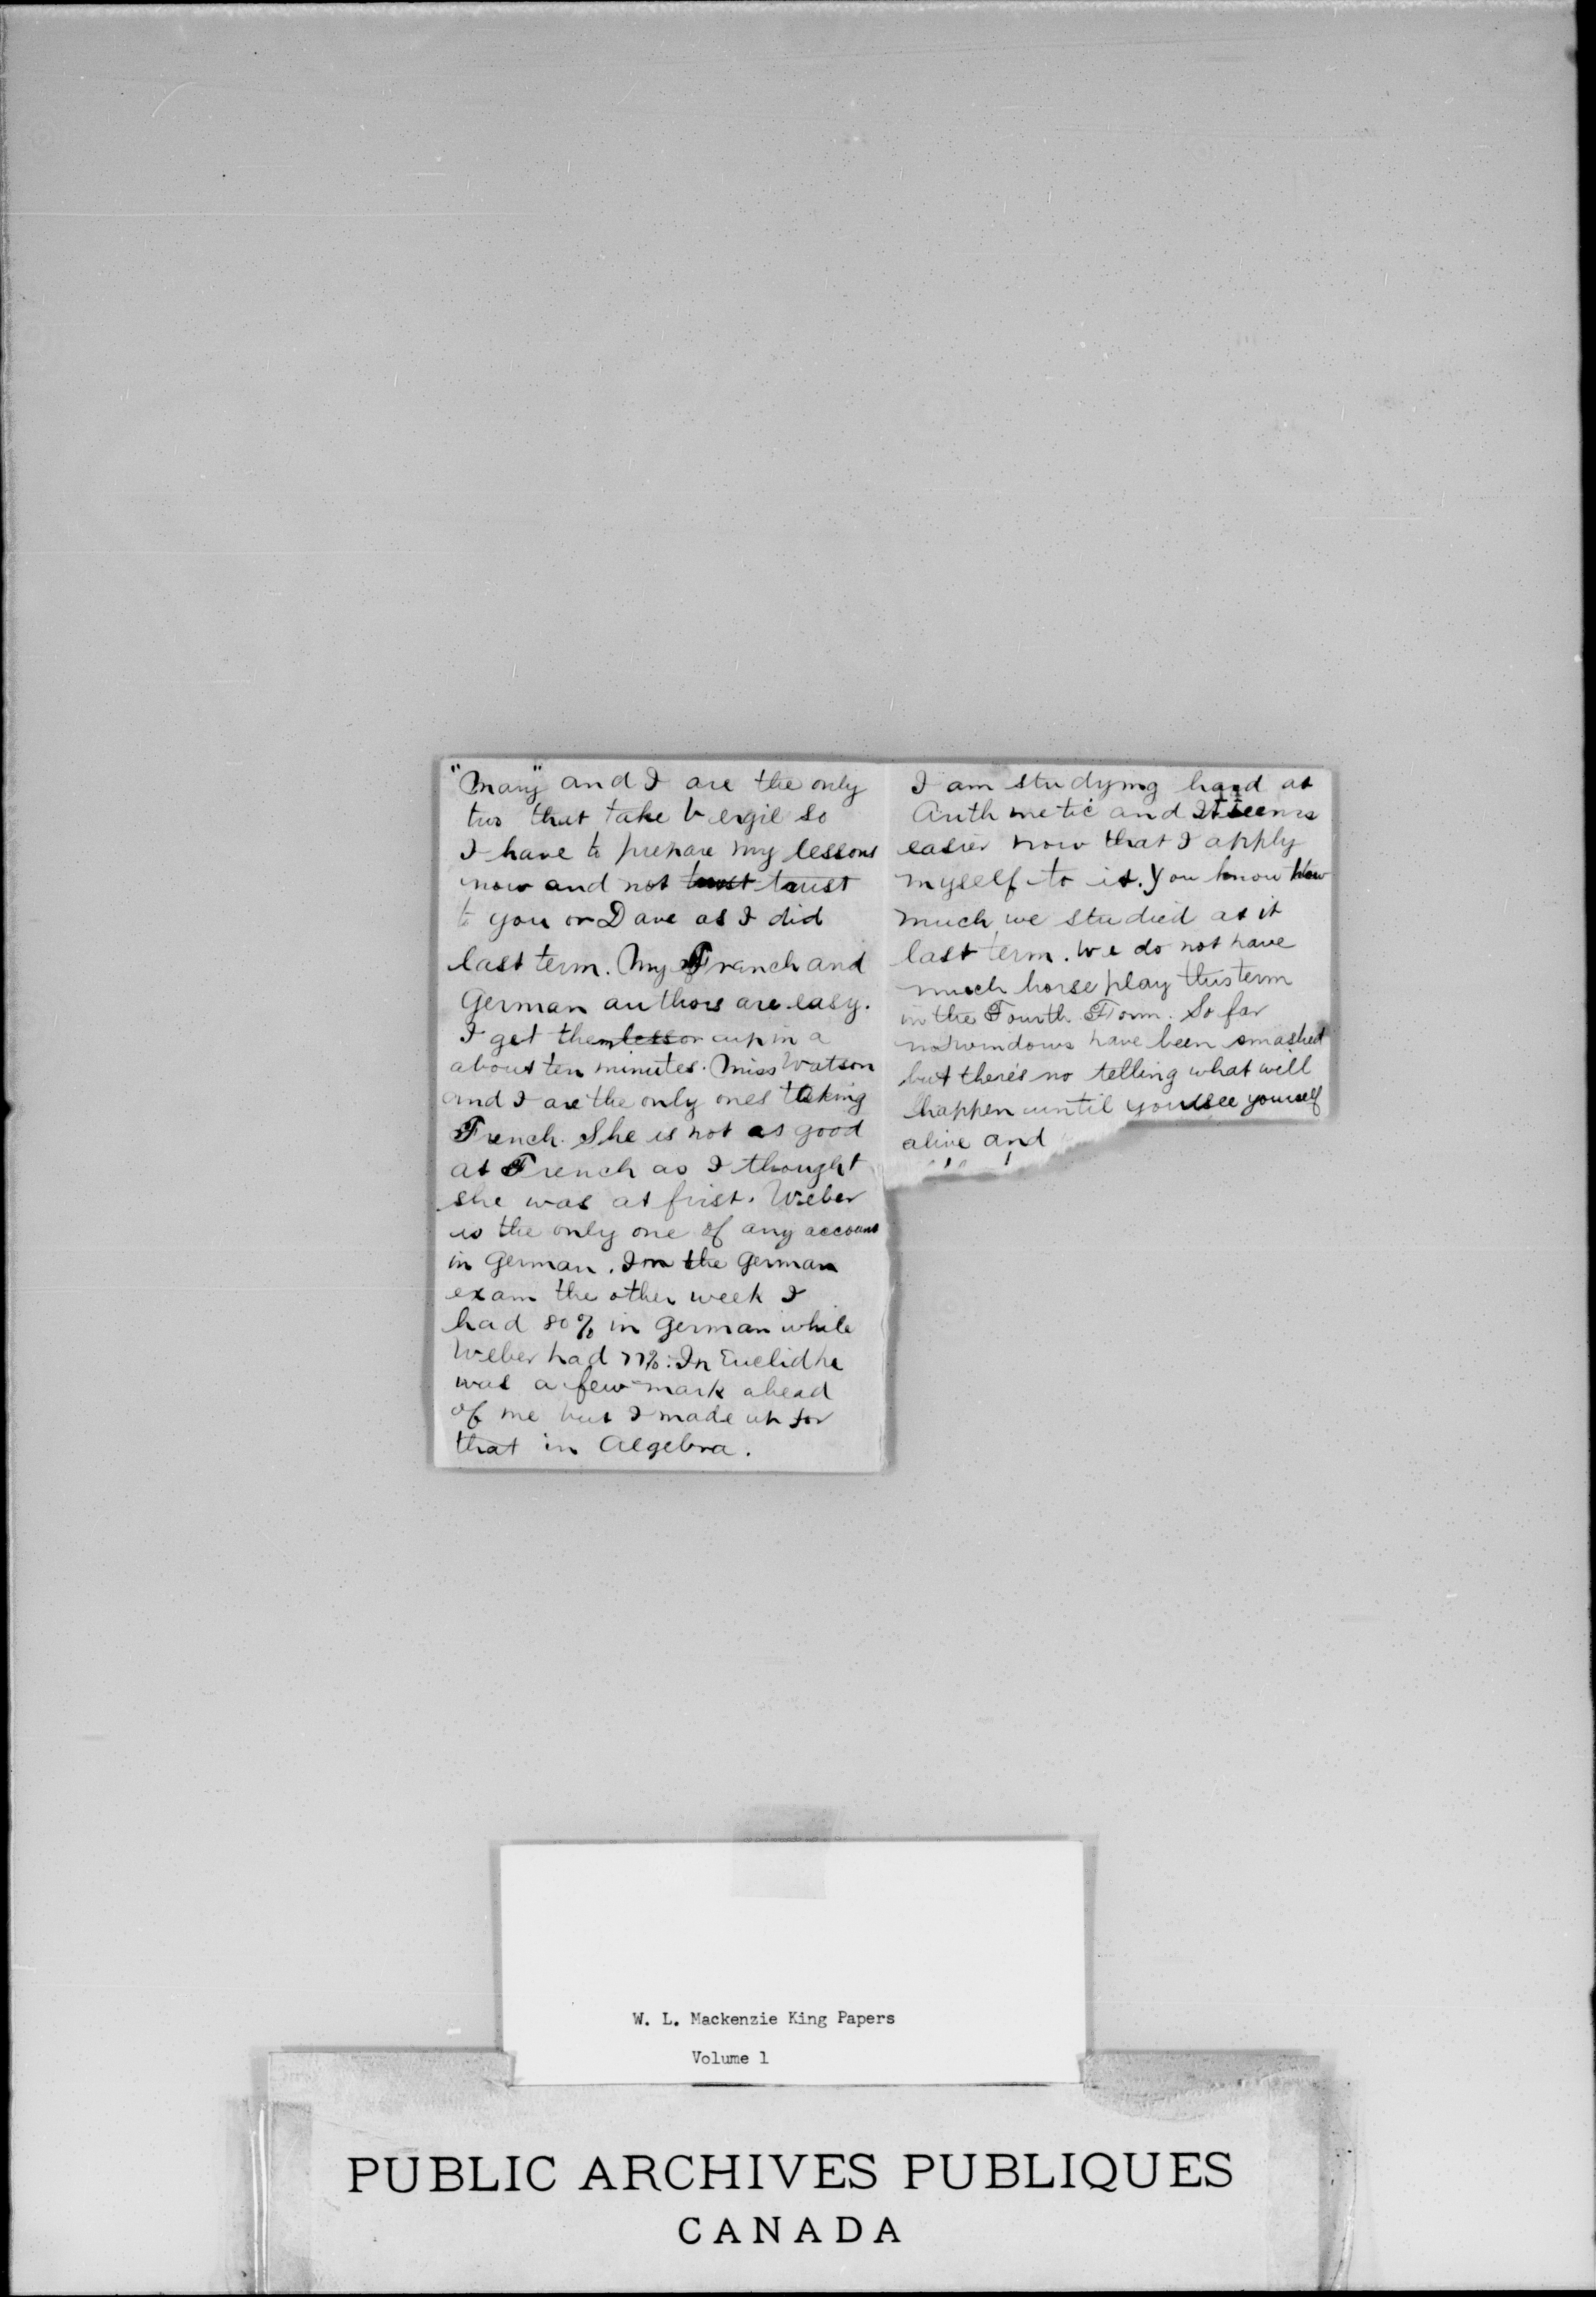 "Mary" and I are the only
two that take Vergil so
I have to prepare my lessons
now and not trust trust
to you or Dave as I did
last term. My French and
German authors are easy.
I get them lesson up in a
about ten minutes. Miss Watson
and I are the only ones taking
French. She is not as good
at French as I thought
she was at first. Weber
is the only one of any account
in German. In the German
exam the other week I
had 80% in German while
Weber had 77%. In Euclid he
was a few mark ahead
of me but I made up for
that in Algebra.
I am studying hard at
Arithmetic and It seems
easier now that I apply
myself to it. You know how
much we studied at it
last term. We do not have
much horse play this term
in the Fourth Form. So far
no windows have been smashed
but there's no telling what will
happen until you see yourself
alive and
W. L. Mackenzie King Papers
Volume 1
PUBLIC ARCHIVES PUBLIQUES
CANADA